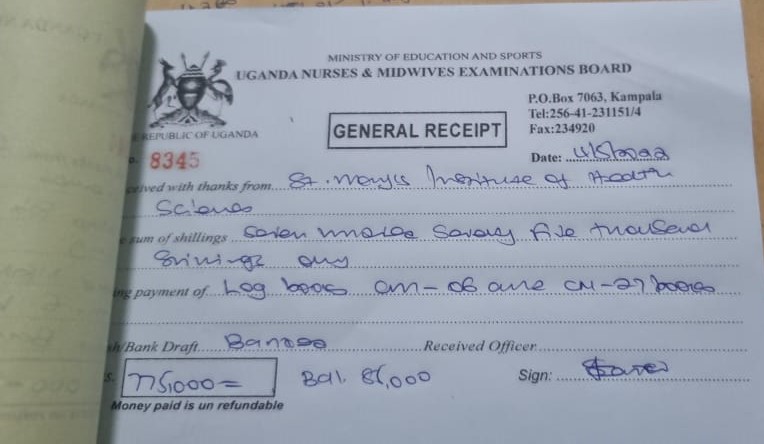 MINISTRY OF EDUCATION AND SPORTS
UGANDA NURSES & MIDWIVES EXAMINATIONS BOARD
P.O.Box 7063, Kampala
Tel:256-41-231151/4
Fax:234920
REPUBLIC OF UGANDA
GENERAL RECEIPT
8345
Date:
with thanks from St. Mary's Institute of Health
Sciences
sum of shillings Seven Seventy five thousand
only
payment of Log books and CM-27 books
/Bank Draft Received Officer
775,000= Bal. Sign:
Money paid is un refundable